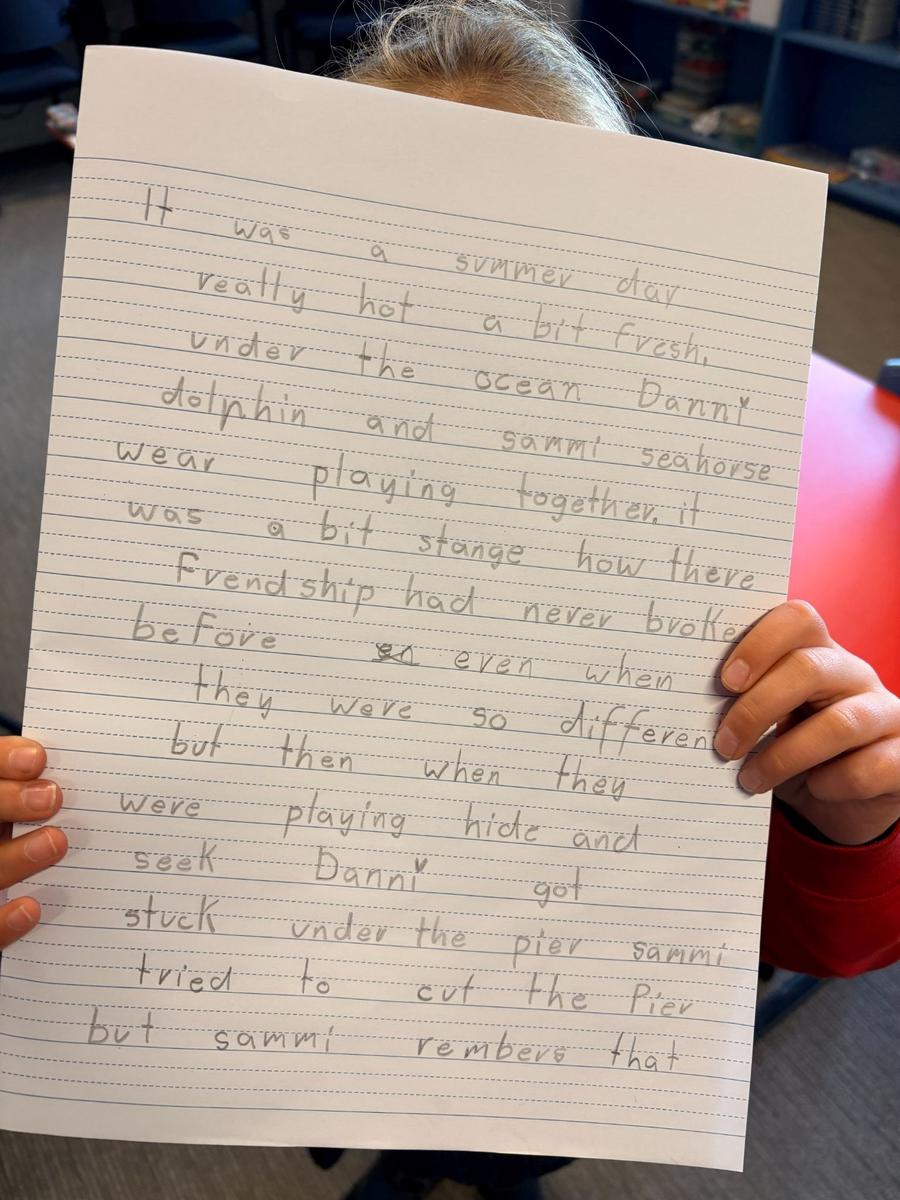 It was a summer day
really hot a bit fresh,
under the ocean Danni
dolphin and sammi seahorse
wear playing together. it
was a bit stange how there
Frendship had never broke
before even when
they were so differen
but then when they
were playing hide and
seek Danni got
stuck under the pier sammi
tried to cut the Pier
but sammi rembers that